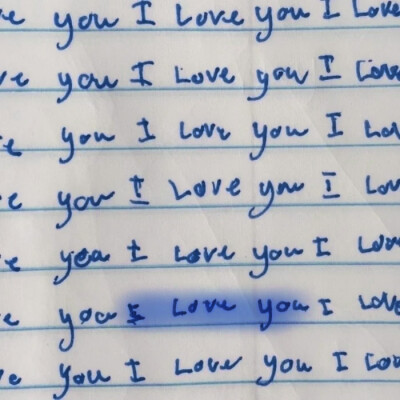 you I Love you I Love
you I Love you I Love
you I Love you I
you I Love you I
you I Love you I Love
you I Love you I Love
you I Love you I